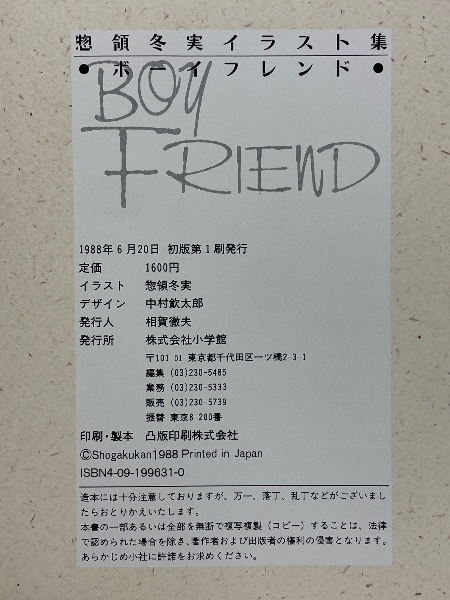 惣領冬実イラスト集
●ボーイフレンド●
BOY
FRIEND
1988年6月20日 初版第1刷発行
定価 1600円
イラスト 惣領冬実
デザイン 中村欽太郎
発行人 相賀徹夫
発行所 株式会社小学館
〒101 01 東京都千代田区一ツ橋2-3-1
編集 (03)230-5485
業務 (03)230-5333
販売 (03)230-5739
振替 東京8 200番
印刷・製本 凸版印刷株式会社
©Shogakukan1988 Printed in Japan
ISBN4-09-199631-0
造本には十分注意しておりますが、万一、落丁、乱丁などがございまし
たらおとりかえいたします。
本書の一部あるいは全部を無断で複写複製(コピー)することは、法律
で認められた場合を除き、著作者および出版者の権利の侵害となります。
あらかじめ小社に許諾をお求めください。